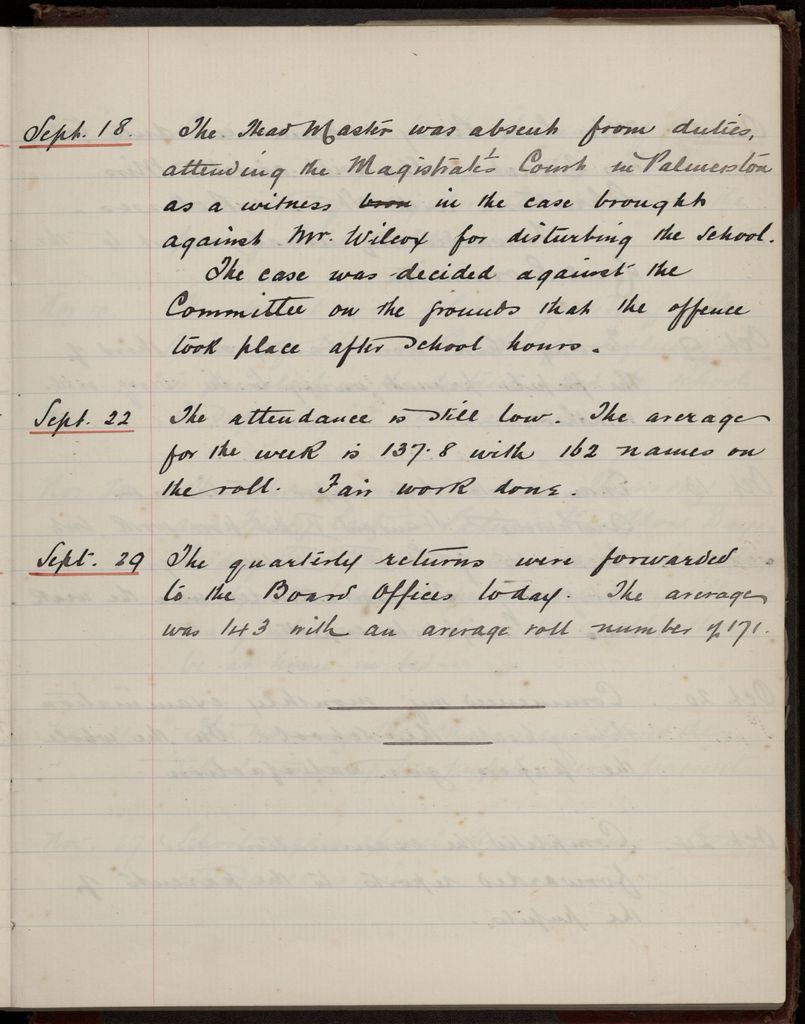 Sept. 18. The Head Master was absent from duties,
attending the Magistrate's Court in Palmerston
as a witness in the case brought
against Mr. Wilcox for disturbing the School.
The case was decided against the
Committee on the grounds that the offence
took place after School hours.
Sept. 22 The attendance is still low. The average
for the week is 137.8 with 162 names on
the roll. Fair work done.
Sept. 29 The quarterly returns were forwarded
to the Board Offices today. The average
was 143 with an average roll number of 171.